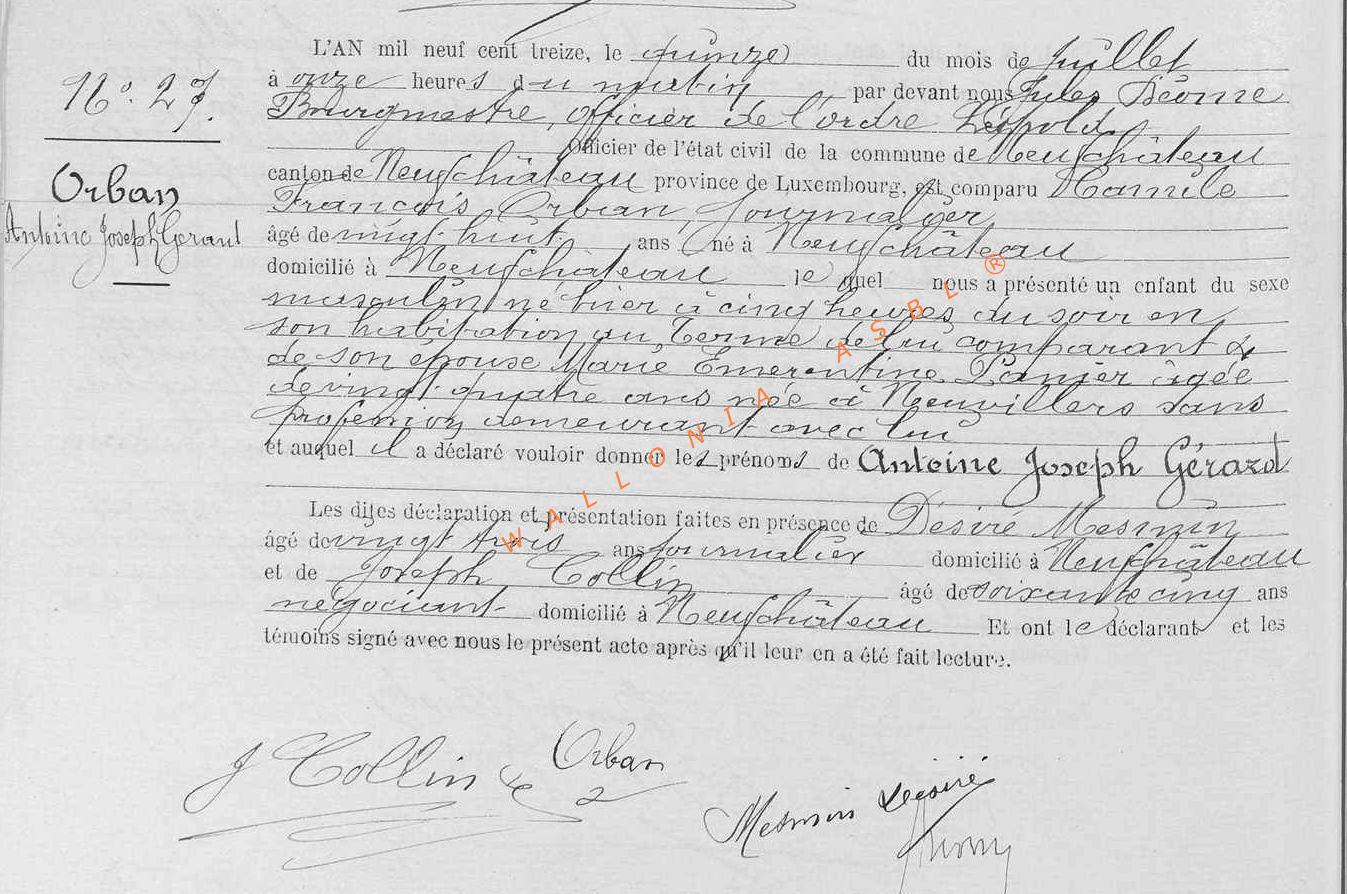 L'AN mil neuf cent treize, le quinze du mois de juillet
à onze heures du matin par devant nous Jules
Bourgmestre, officier de l'ordre Léopold
Officier de l'état civil de la commune de Neufchâteau
canton de Neufchâteau province de Luxembourg, est comparu
François Orban, journalier
âgé de vingt huit ans né à Neufchâteau
domicilié à Neufchâteau lequel nous a présenté un enfant du sexe
masculin né hier à cinq heures du soir en
son habitation au Terme de lui comparant &
de son épouse Marie Emerentine Panier âgée
de vingt quatre ans née à Neuvillers sans
profession demeurant avec lui
et auquel il a déclaré vouloir donner les prénoms de Antoine Joseph Gérard
Les dites déclaration et présentation faites en présence de Désiré Mesmin
âgé de vingt trois ans journalier domicilié à Neufchâteau
et de Joseph Collin âgé de soixante cinq ans
négociant domicilié à Neufchâteau Et ont le déclarant et les
témoins signé avec nous le présent acte après qu'il leur en a été fait lecture.
N° 27.
Orban
Antoine Joseph Gérard
J Collin
Orban
Mesmin Désiré
WALLONIA ASBL ®